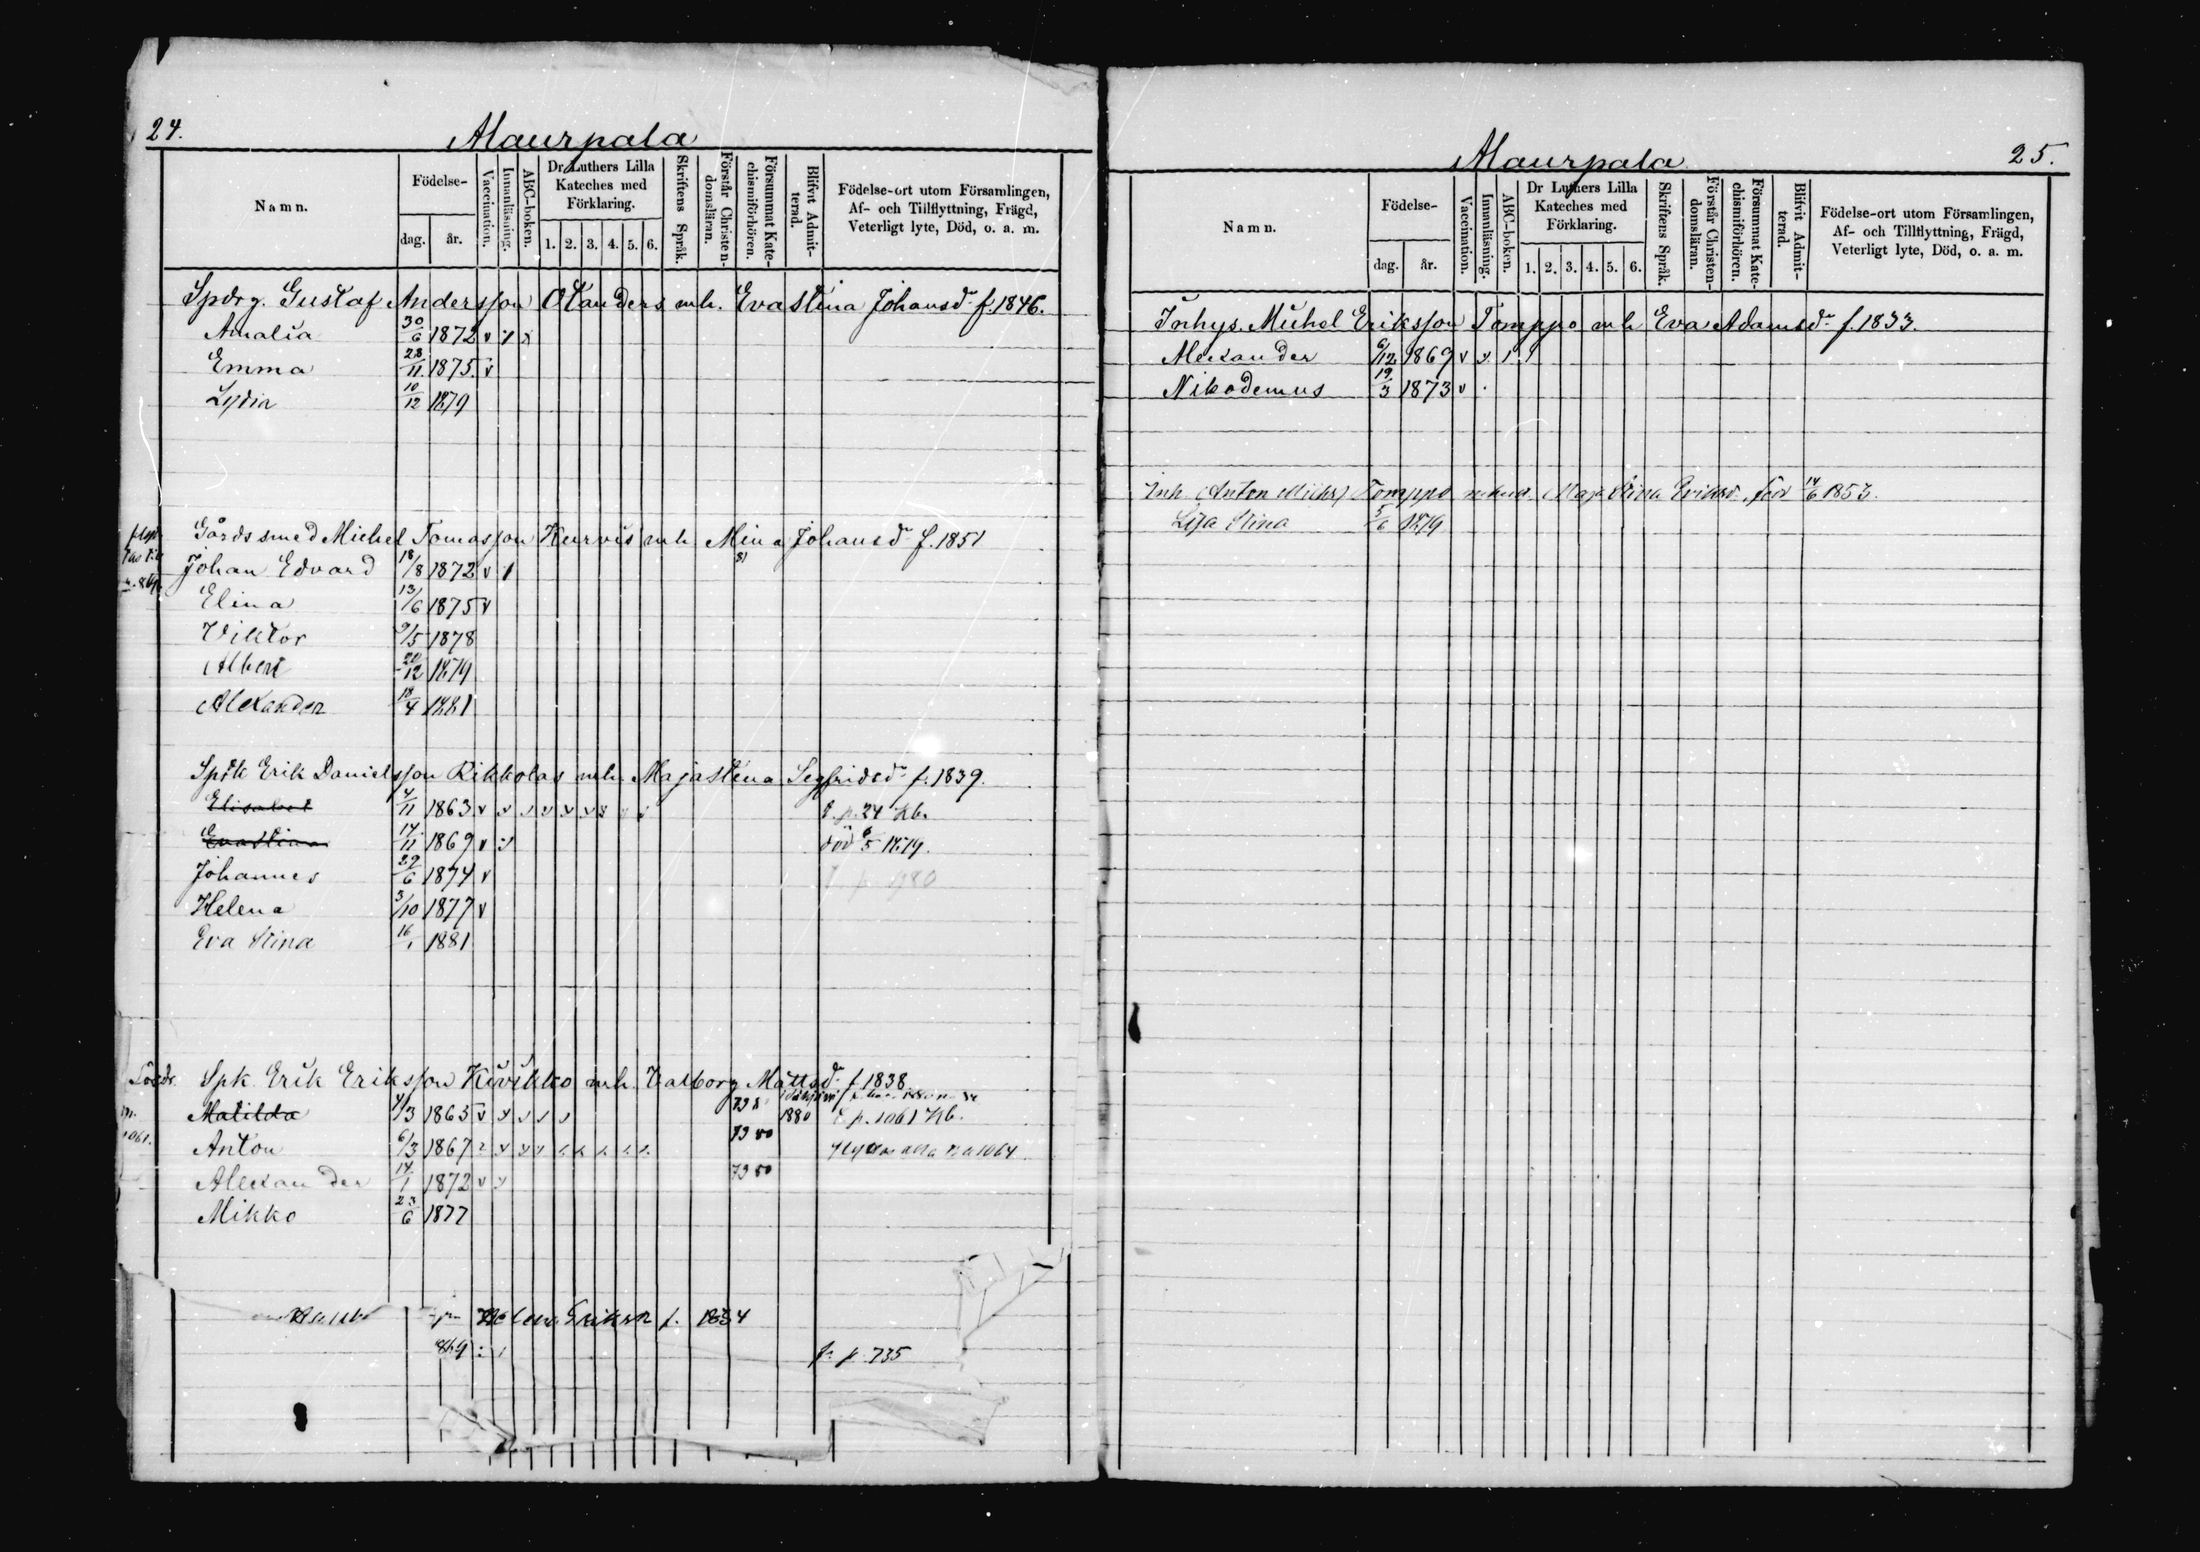 24.
Maurpala
Namn.
Födelse-
dag.
år.
Vaccination.
Innanläsning.
ABC-boken.
Dr Luthers Lilla
Kateches med
Förklaring.
1. 2. 3. 4. 5. 6.
Skriftens Språk.
Förstår Christen-
domsläran.
Försummat Kate-
chismiförhören.
Blifvit Admit-
terad.
Födelse-ort utom Församlingen,
Af- och Tillflyttning, Frägd,
Veterligt lyte, Död, o. a. m.
Spdrg. Gustaf Andersson Otanders mh. Eva Stina Johansd. f. 1846.
Amalia 30/6 1872 v
Emma 28/11 1875. v
Lydia 10/12 1879
Gårdssmed Michel Tomasson Kurvis mh Mina Johansd f. 1851
Johan Edvard 18/8 1872 v 81
Elina 13/6 1875 v
Viktor 9/5 1878
Albert 20/12 1879
Alexander 18/4 1881
Spik Erik Danielsson Rikkolas mh Maja Stina Segfridsd f. 1839.
Elisabet 4/11 1863 v p. 24 Kb.
Eva Stina 14/11 1869 v död 6/5 1879.
Johannes 29/6 1874 v
Helena 3/10 1877 v
Eva Stina 16/1 1881
Spk. Erik Eriksson Kivikko mh. Valborg Mattsd. f. 1838
Matilda 4/3 1863 v 1880 p. 1061 Kb.
1061.
Anton 6/3 1867 79 80 1064
Alexander 14/1 1872 v 79 80
Mikko 23/6 1877
Helena Eriksd f. 1834
869 p. 735
Maurpala
25.
Namn.
Födelse-
dag.
år.
Vaccination.
Innanläsning.
ABC-boken.
Dr Luthers Lilla
Kateches med
Förklaring.
1. 2. 3. 4. 5. 6.
Skriftens Språk.
Förstår Christen-
domsläran.
Försummat Kate-
chismiförhören.
Blifvit Admit-
terad.
Födelse-ort utom Församlingen,
Af- och Tillflyttning, Frägd,
Veterligt lyte, Död, o. a. m.
Inhys. Michel Eriksson Tomppo mh Eva Adamsd. f. 1833.
Alexander 6/12 1869 v
Nikodemus 19/3 1873 v
Inh. (Anton Michs) Tomppo Maja Stina Eriksd. född 14/6 1853.
Lisa Stina 5/6 1879